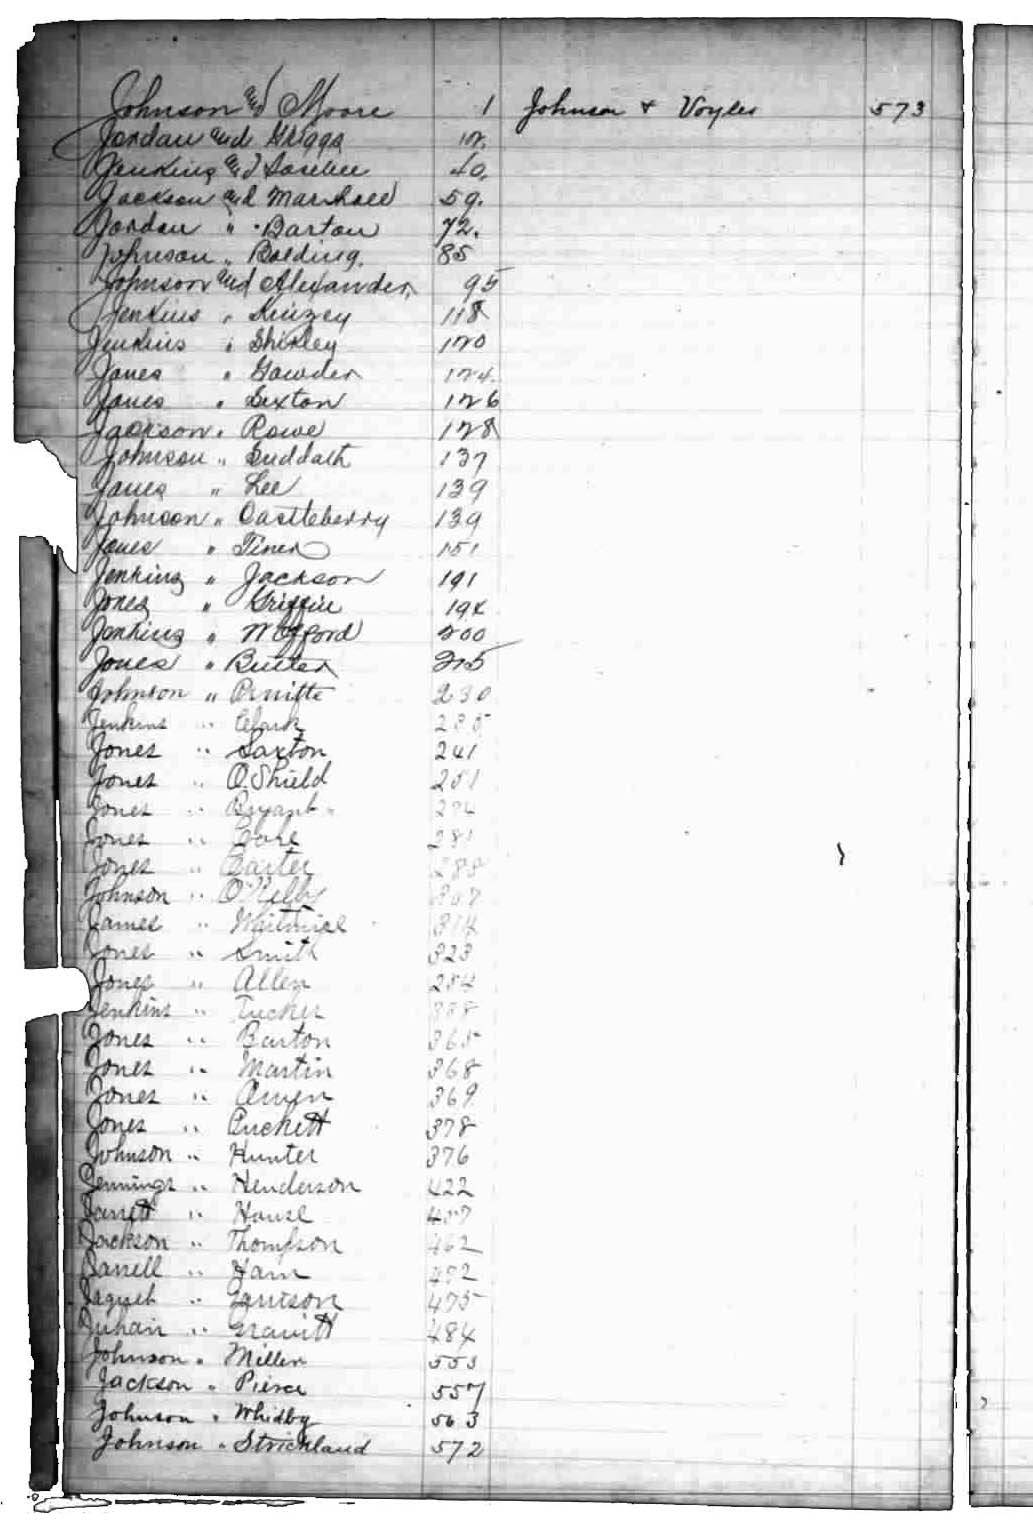 Johnson and Moore 1 Johnson & Voyles 573
Jordan and Griggs 12.
Jenkins and 40.
Jackson and Marshall 59.
Jordan " Barton 72.
Johnson " Bolding. 85
Johnson and Alexander 95
Jenkins " Kinzey 118
Jenkins " Shirley 120
Jones " Gowder 124.
Jones " Sexton 126
Jackson " Rowe 128
Johnson " Suddath 137
Jones " Lee 139
Johnson " Castleberry 139
Jones " Tiner 151
Jenkins " Jackson 191
Jones " Griffin 194
Jenkins " Wofford 200
Jones " Butter 215
Johnson " Pruitte 230
Jenkins " Clark 235
Jones " Saxton 241
Jones " O.Shield 251
Jones " Bryant 274
Jones " 281
Jones " Carter 288
Johnson " O'Kelly 307
James " 314
Jones " Smith 323
Jones " Allen 284
Jenkins " Tucker 338
Jones " Barton 365
Jones " Martin 368
Jones " Owen 369
Jones " Puckett 378
Johnson " Hunter 376
Jennings " Henderson 422
Jarrett " House 457
Jackson " Thompson 462
Jarrell " Ham 472
" Garrison 475
Juhan " Gravitt 484
Johnson " Miller 553
Jackson " Pierce 557
Johnson " Whidby 563
Johnson " Strickland 572